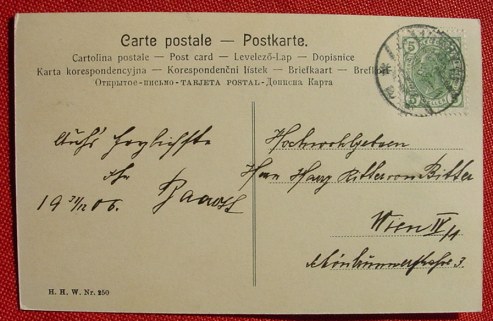 Carte postale — Postkarte.
Cartolina postale — Post card — Levelező-Lap — Dopisnice
Karta korespondencyjna — Korespondenční lístek — Briefkaart —
Открытое-письмо-TARJETA POSTAL-Дописна Карта
5
5 5
Auf's herzlichste
Ihr
19 31/12 06.
Hochwohlgeboren
Herrn Harry Ritter von Bitter
Wien IV/1
3.
H. H. W. Nr. 250